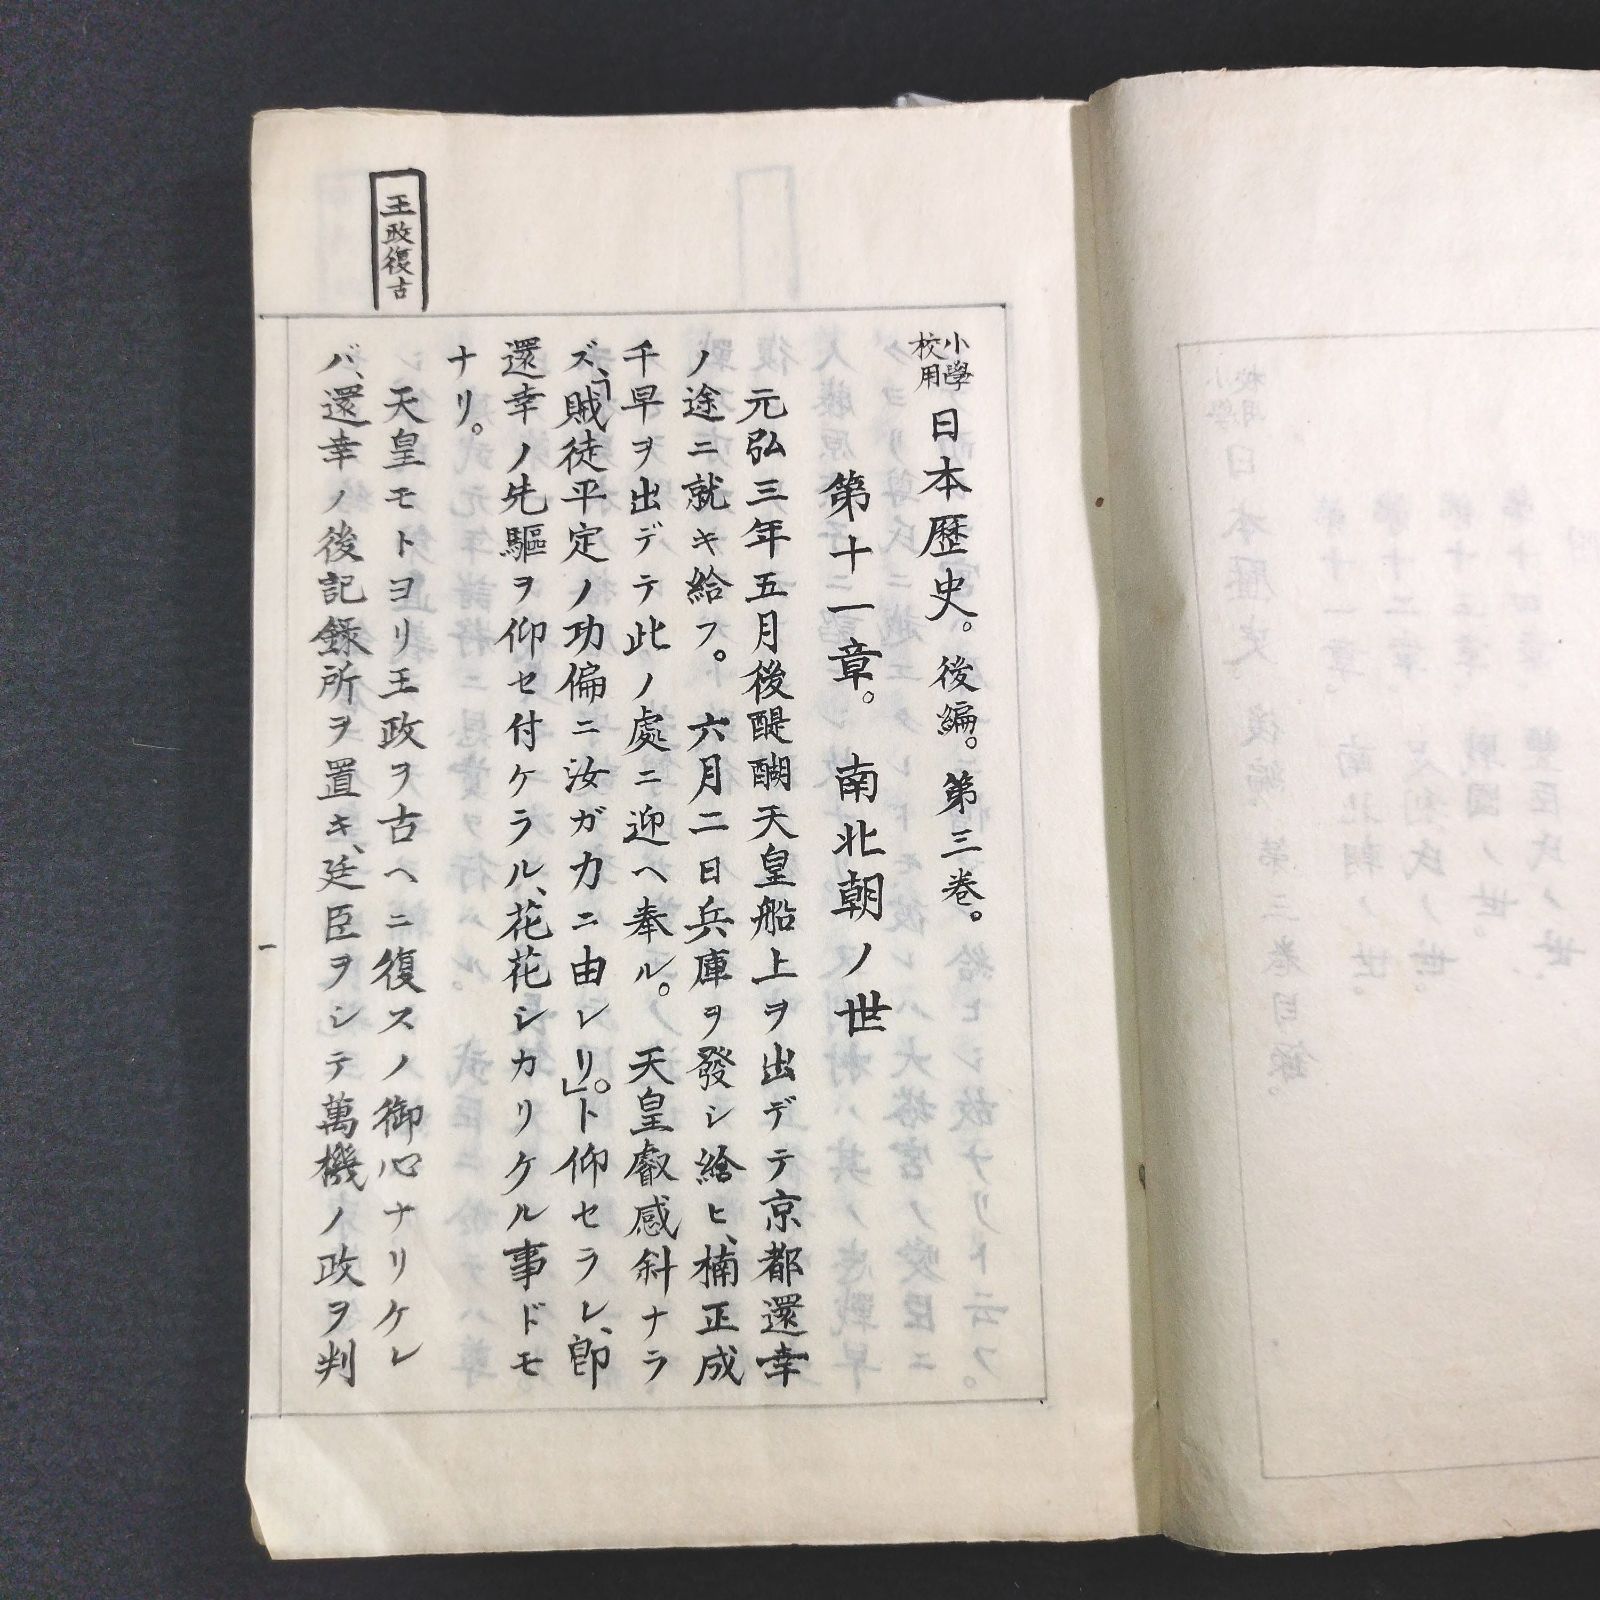 小學校用 日本歷史。後編。第三卷。
第十一章。 南北朝ノ世
元弘三年五月後醍醐天皇船上ヲ出デテ京都還幸
ノ途ニ就キ給フ。 六月二日兵庫ヲ發シ給ヒ、楠正成
千早ヲ出デテ此ノ處ニ迎ヘ奉ル。 天皇叡感斜ナラ
ズ、「賊徒平定ノ功偏ニ汝ガ力ニ由レリ。」ト仰セラレ、即
還幸ノ先驅ヲ仰セ付ケラル、花花シカリケル事ドモ
ナリ。
王政復古
天皇モトヨリ王政ヲ古ヘニ復スノ御心ナリケレ
バ、還幸ノ後記録所ヲ置キ、廷臣ヲシテ萬機ノ政ヲ判
一